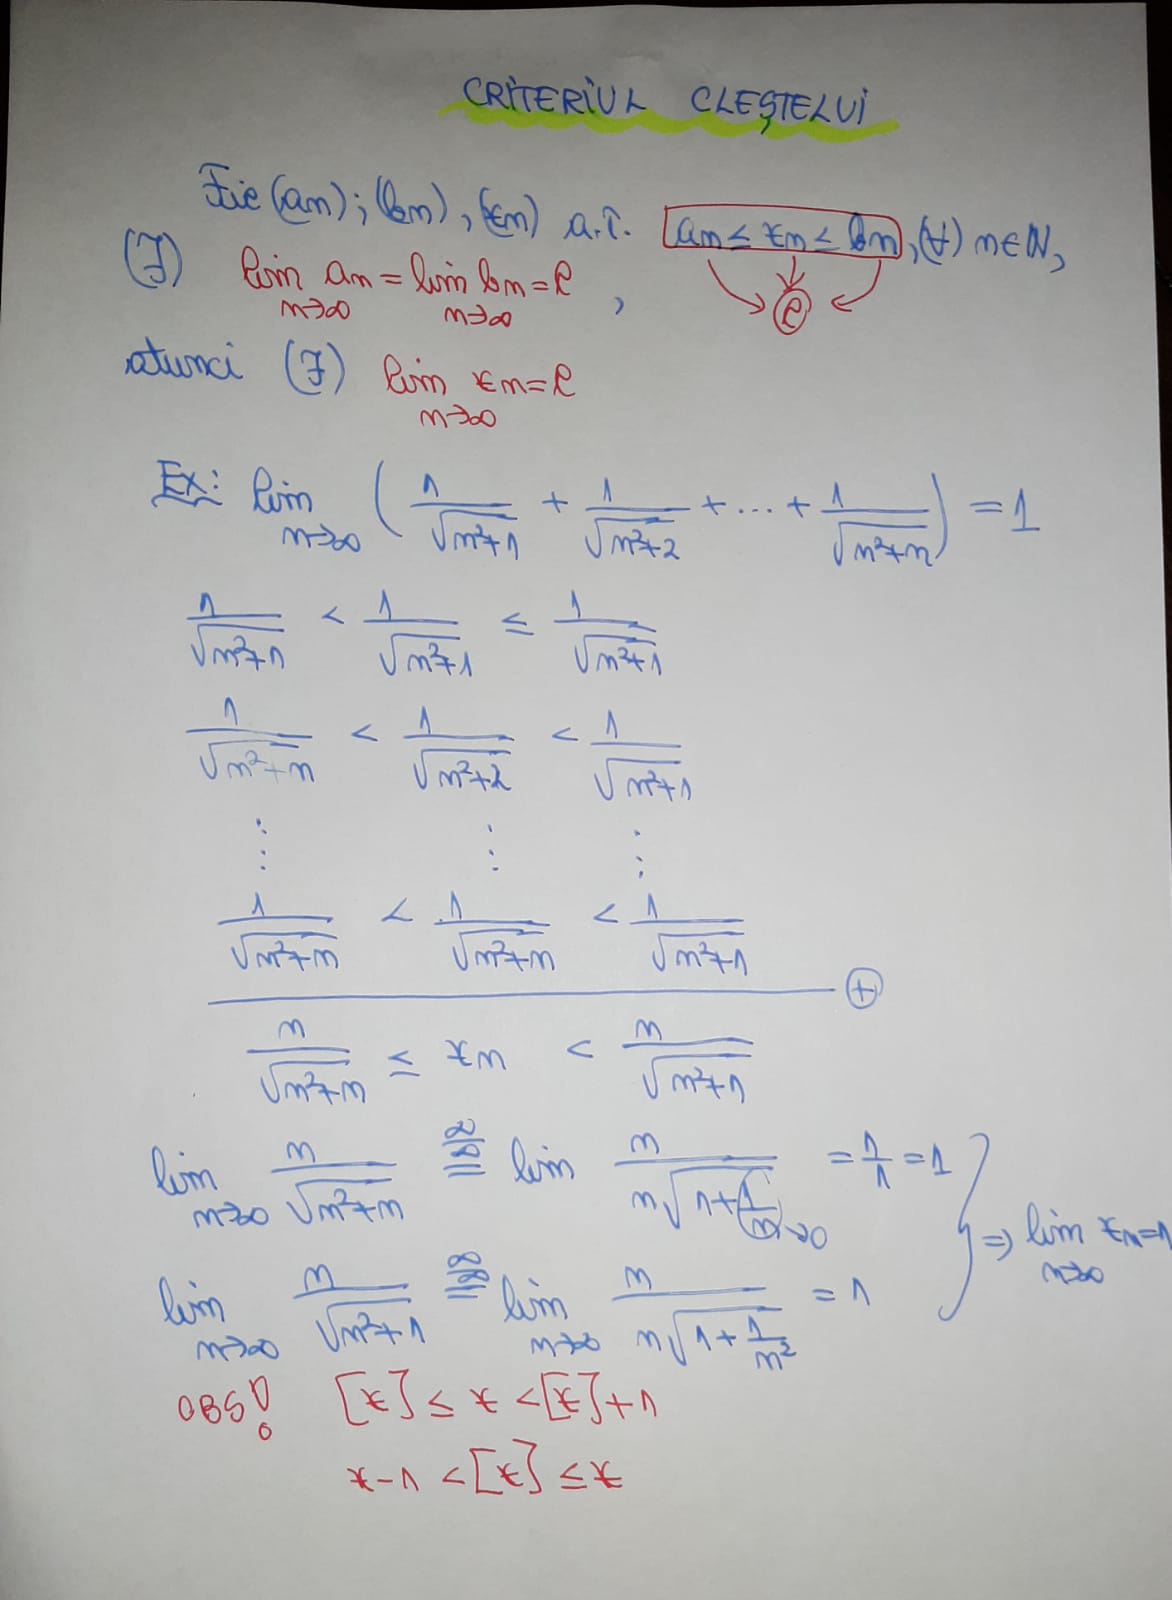 CRITERIUL CLEȘTELUI
Fie (an); (bn), (xn) a.î. an ≤ xn ≤ bn, (∀) n∈N,
(∃) lim n→∞ an = lim n→∞ bn = l, l
atunci (∃) lim n→∞ xn = l
Ex: lim n→∞ (1/√(n²+1) + 1/√(n²+2) + ... + 1/√(n²+n)) = 1
1/√(n²+n) < 1/√(n²+1) ≤ 1/√(n²+1)
1/√(n²+n) < 1/√(n²+2) < 1/√(n²+1)
⋮ ⋮ ⋮
1/√(n²+n) < 1/√(n²+n) < 1/√(n²+1)
⊕
n/√(n²+n) ≤ xn < n/√(n²+1)
lim n→∞ n/√(n²+n) =(∞/∞) lim n/(n√(1+1/n)) →0 = 1/1 = 1
⇒ lim n→∞ xn = 1
lim n→∞ n/√(n²+1) =(∞/∞) lim n→∞ n/(n√(1+1/n²)) = 1
OBS! [x] ≤ x < [x]+1
x-1 < [x] ≤ x